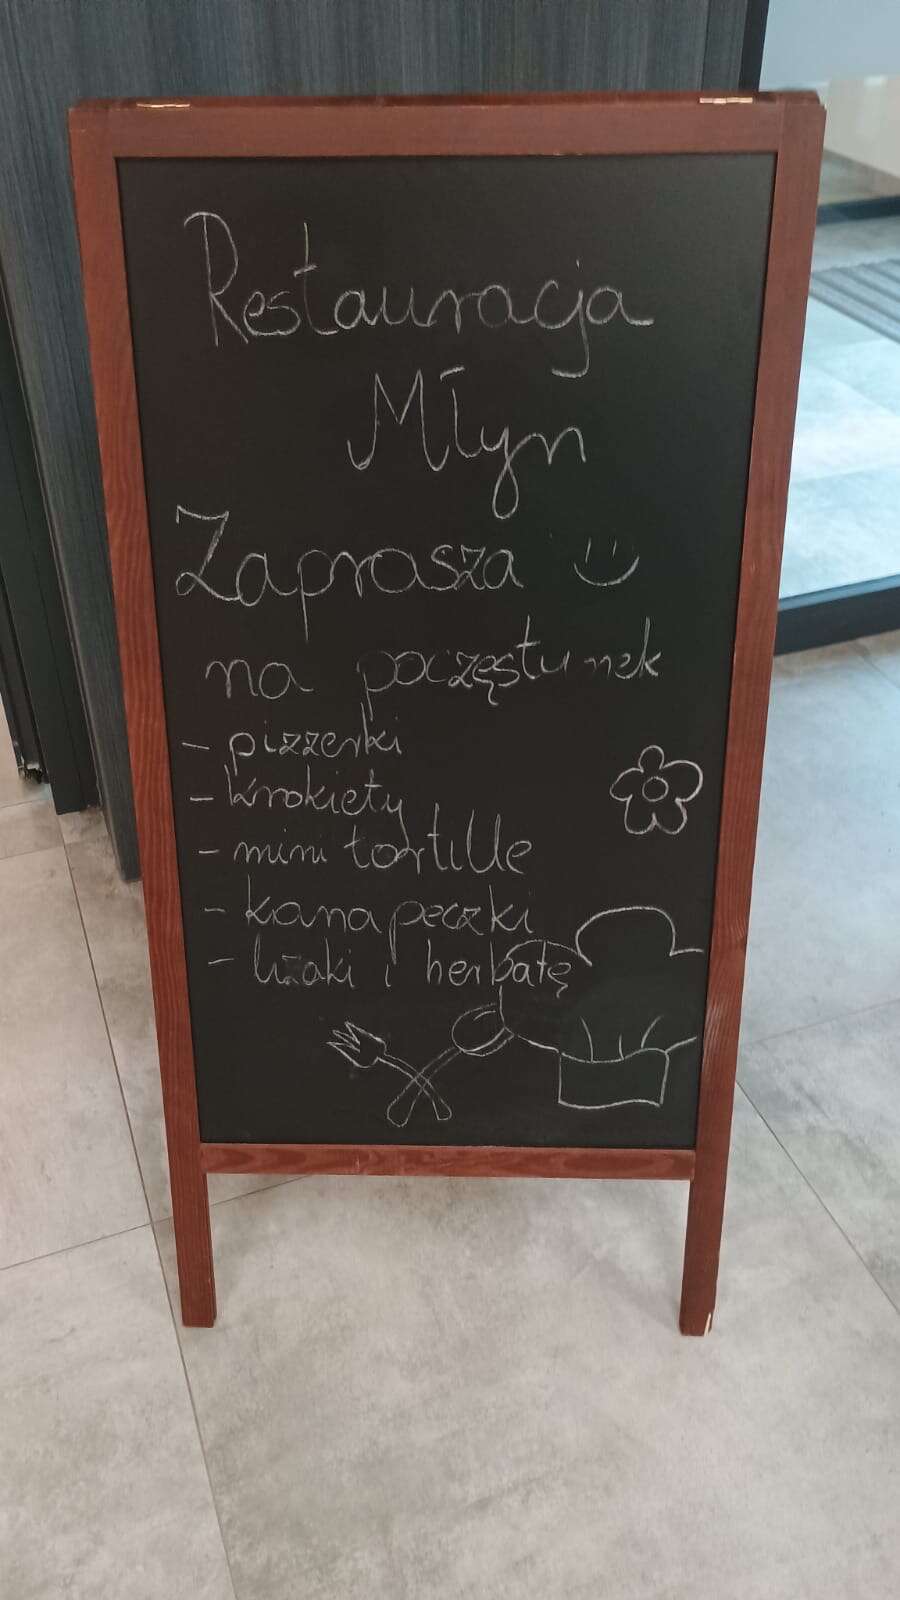 Restauracja
Młyn
Zaprasza :)
na poczęstunek
- pizzerki
- krokiety
- mini tortille
- kanapeczki
- lizaki i herbatę